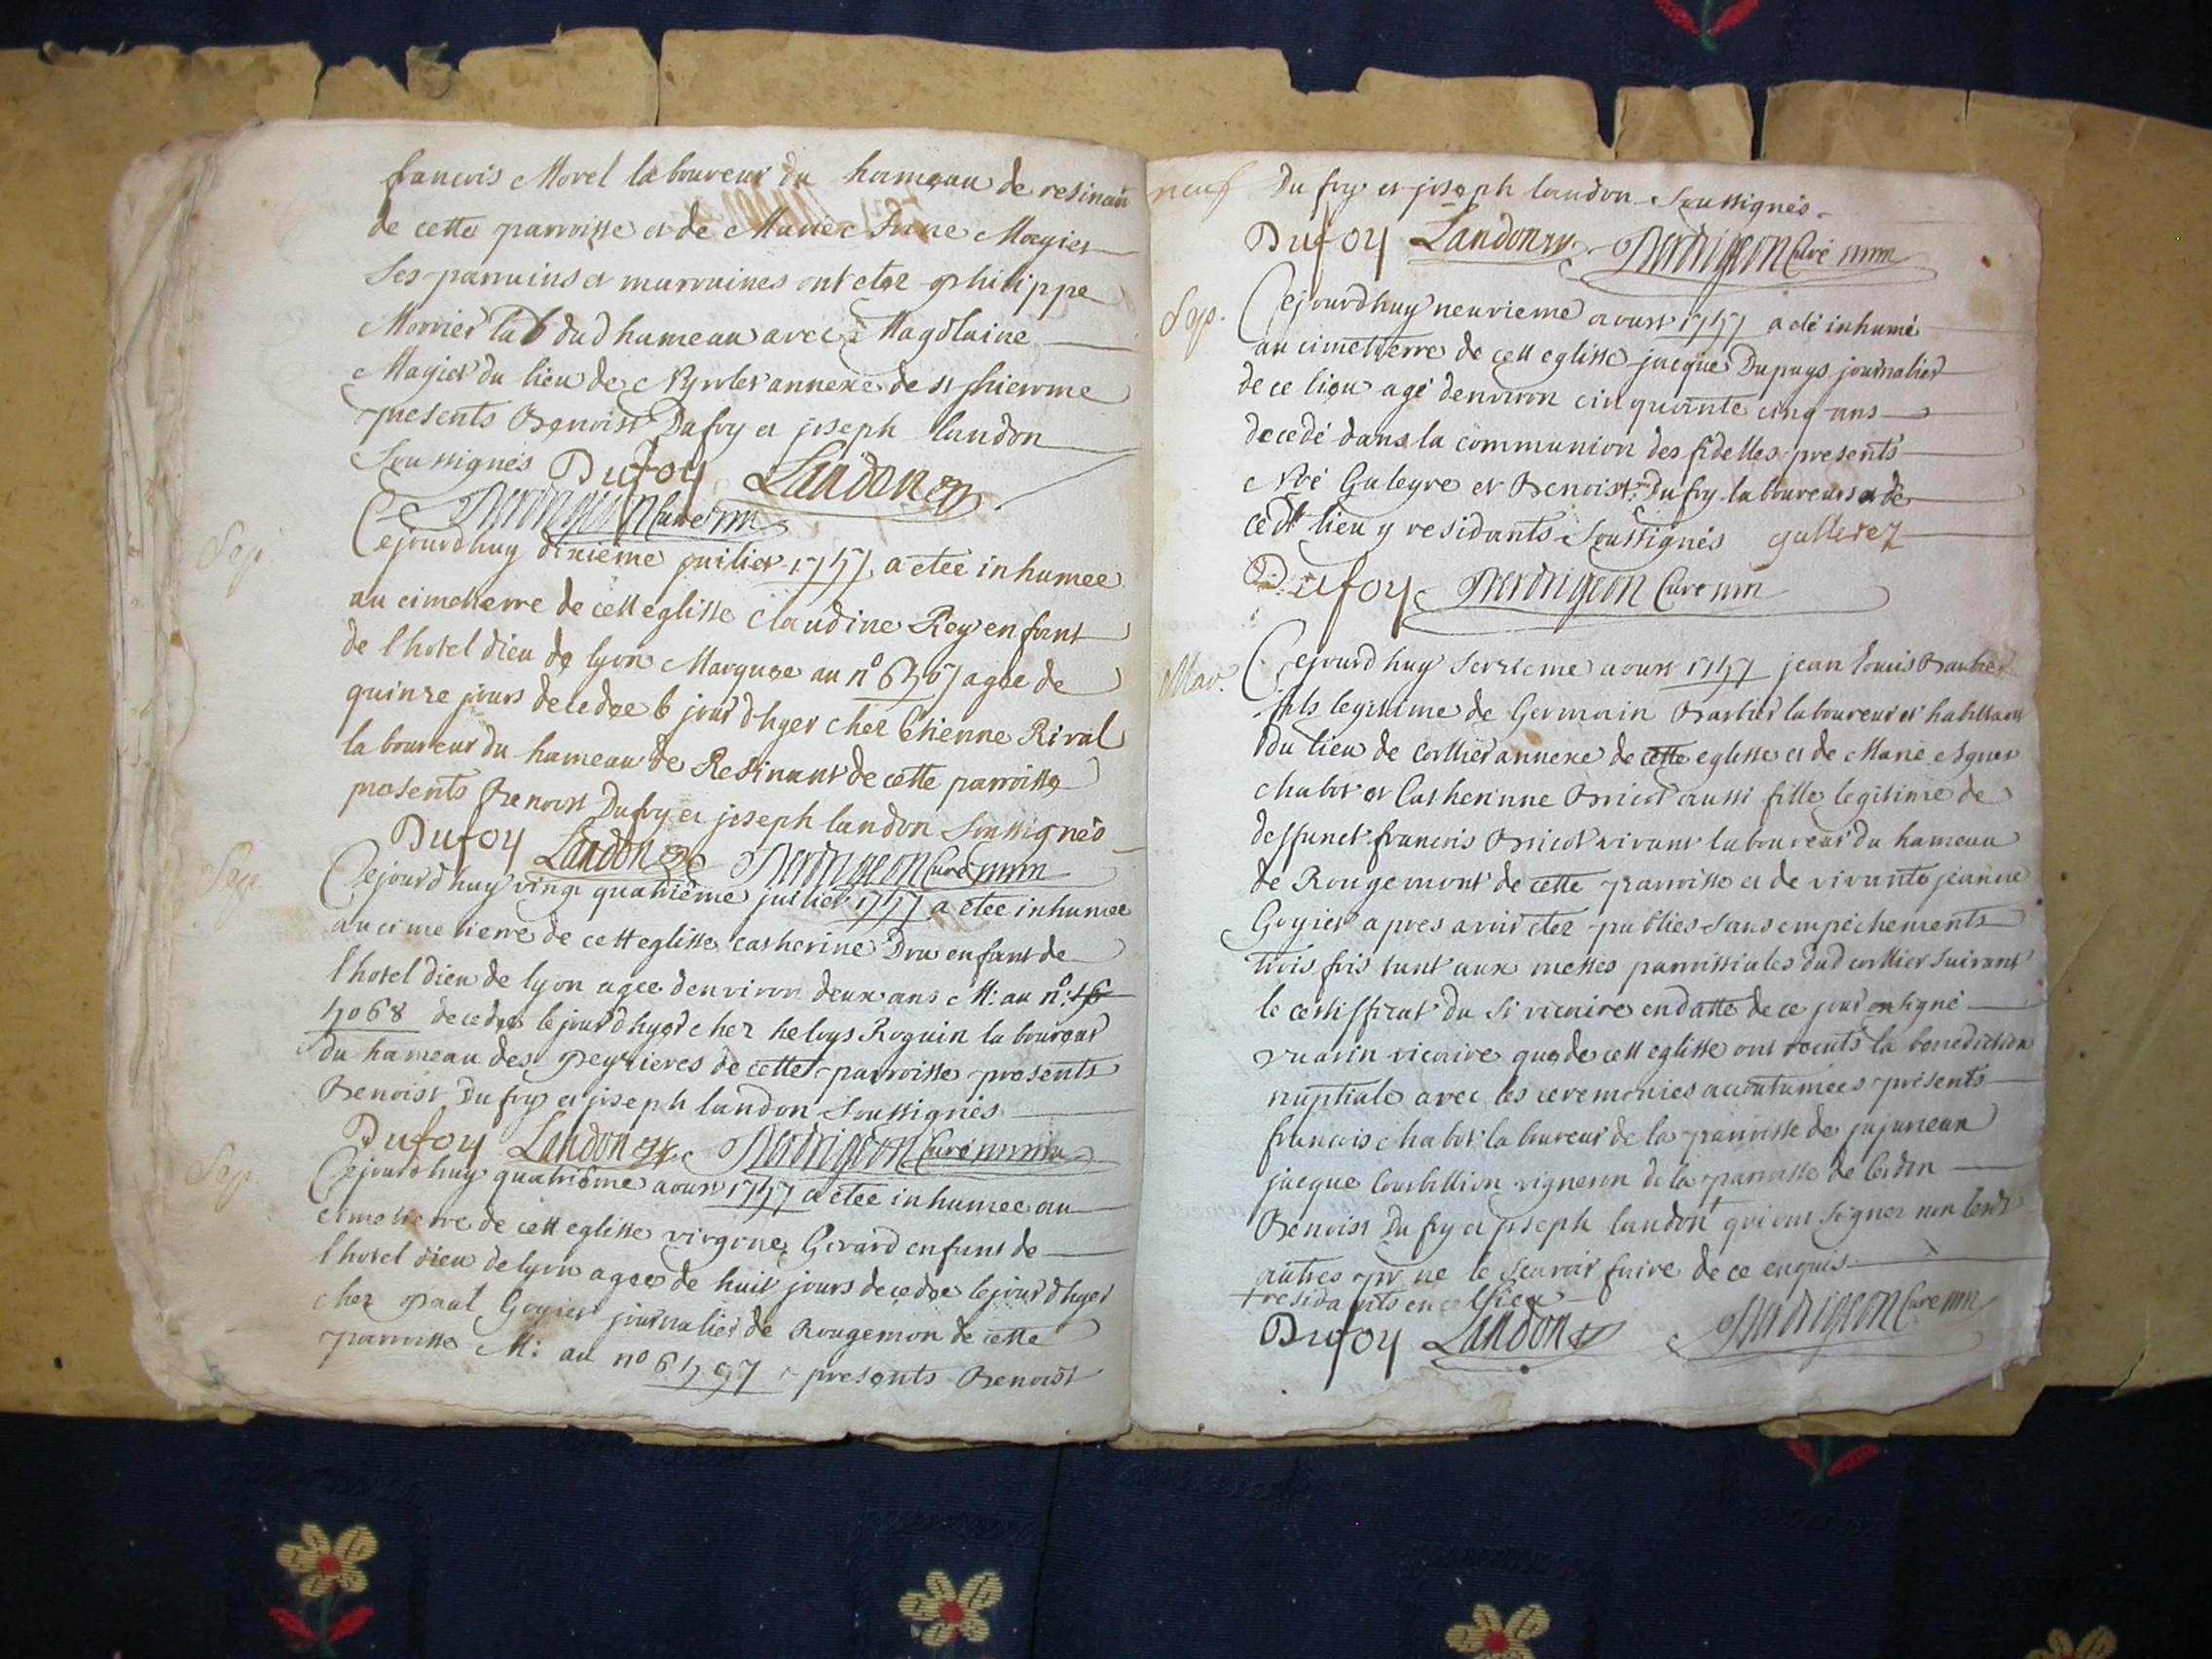 francois Morel laboureur du hameau de resinan
de cette parroisse et de Marie Magier
ses parrains et marraines ont etez philippe
Morrier lab dud hameau avec Magdlaine
Magier du lieu de annexe de st hierome
presents Benoist Dufoy et joseph landon
soussignés Dufoy Landon
Perdrigeon Curé
Sep. Cejourdhuy dixieme juilier 1757 a etee inhumee
au cimetierre de cett eglisse claudine Rey enfant
de l'hotel dieu de lyon Marquee au n° agee de
quinze jours decedee le jour d'hyer chez Etienne Rival
laboureur du hameau de Resinans de cette parroisse
presents Benoist Dufoy et joseph landon soussignés
Dufoy Landon Perdrigeon Curé
Sep. Cejourd'huy vingt quatrieme juilier 1757 a etee inhumee
au cimetierre de cett eglisse catherine Dru enfant de
l'hotel dieu de lyon agee d'environ deux ans M: au n°:
5068 decedee le jour d'hyer chez heloys Roguin laboureur
du hameau des peyrieres de cette parroisse presents
Benoist Dufoy et joseph landon soussignés
Dufoy Landon Perdrigeon Curé
Sep. Cejourd'huy quatrieme aoust 1757 a etee inhumee au
cimetierre de cett eglisse Gerard enfant de
l'hotel dieu de lyon agee de huit jours decedee le jour d'hyer
chez paul Goyier journalier de Rougemon de cette
parroisse M: au n° 6597 presents Benoist
neuf Dufoy et joseph landon soussignés
Dufoy Landon Perdrigeon Curé
Sep. Cejourdhuy neuvieme aoust 1757 a eté inhumé
au cimetierre de cett eglisse jacque Dupuys journalier
de ce lieu agé d'environ cinquainte cinq ans
decedé dans la communion des fidelles presents
Galeyre et Benoist Dufoy laboureurs de
ce dt lieu y residants soussignés gallerez
Dufoy Perdrigeon Curé
Mar. Cejourd'huy seizieme aoust 1757 jean louis Barbier
fils legitime de Germain Barbier laboureur et habittant
du lieu de corllier annexe de cette eglisse et de Marie
chabot et Catherinne Bricot aussi fille legitime de
deffunct francois Bricot vivant laboureur du hameau
de Rougemont de cette parroisse et de vivante jeanne
Goyier apres avoir etez publies sans empechements
trois fois tant aux messes parroissiales dud corllier suivant
le certifficat du Sr vicaire en datte de ce jour signé
vuarin vicaire que de cett eglisse ont receuts la benediction
nuptiale avec les ceremonies accoutumees presents
francois chabot laboureur de la parroisse de jujurieux
jacque Courbillion vigneron de la parroisse de Cerdon
Benoist Dufoy et joseph landon qui ont signer non lesd
autres pr ne le scavoir faire de ce enquis
+ residants en ce lieu
Dufoy Landon Perdrigeon Curé